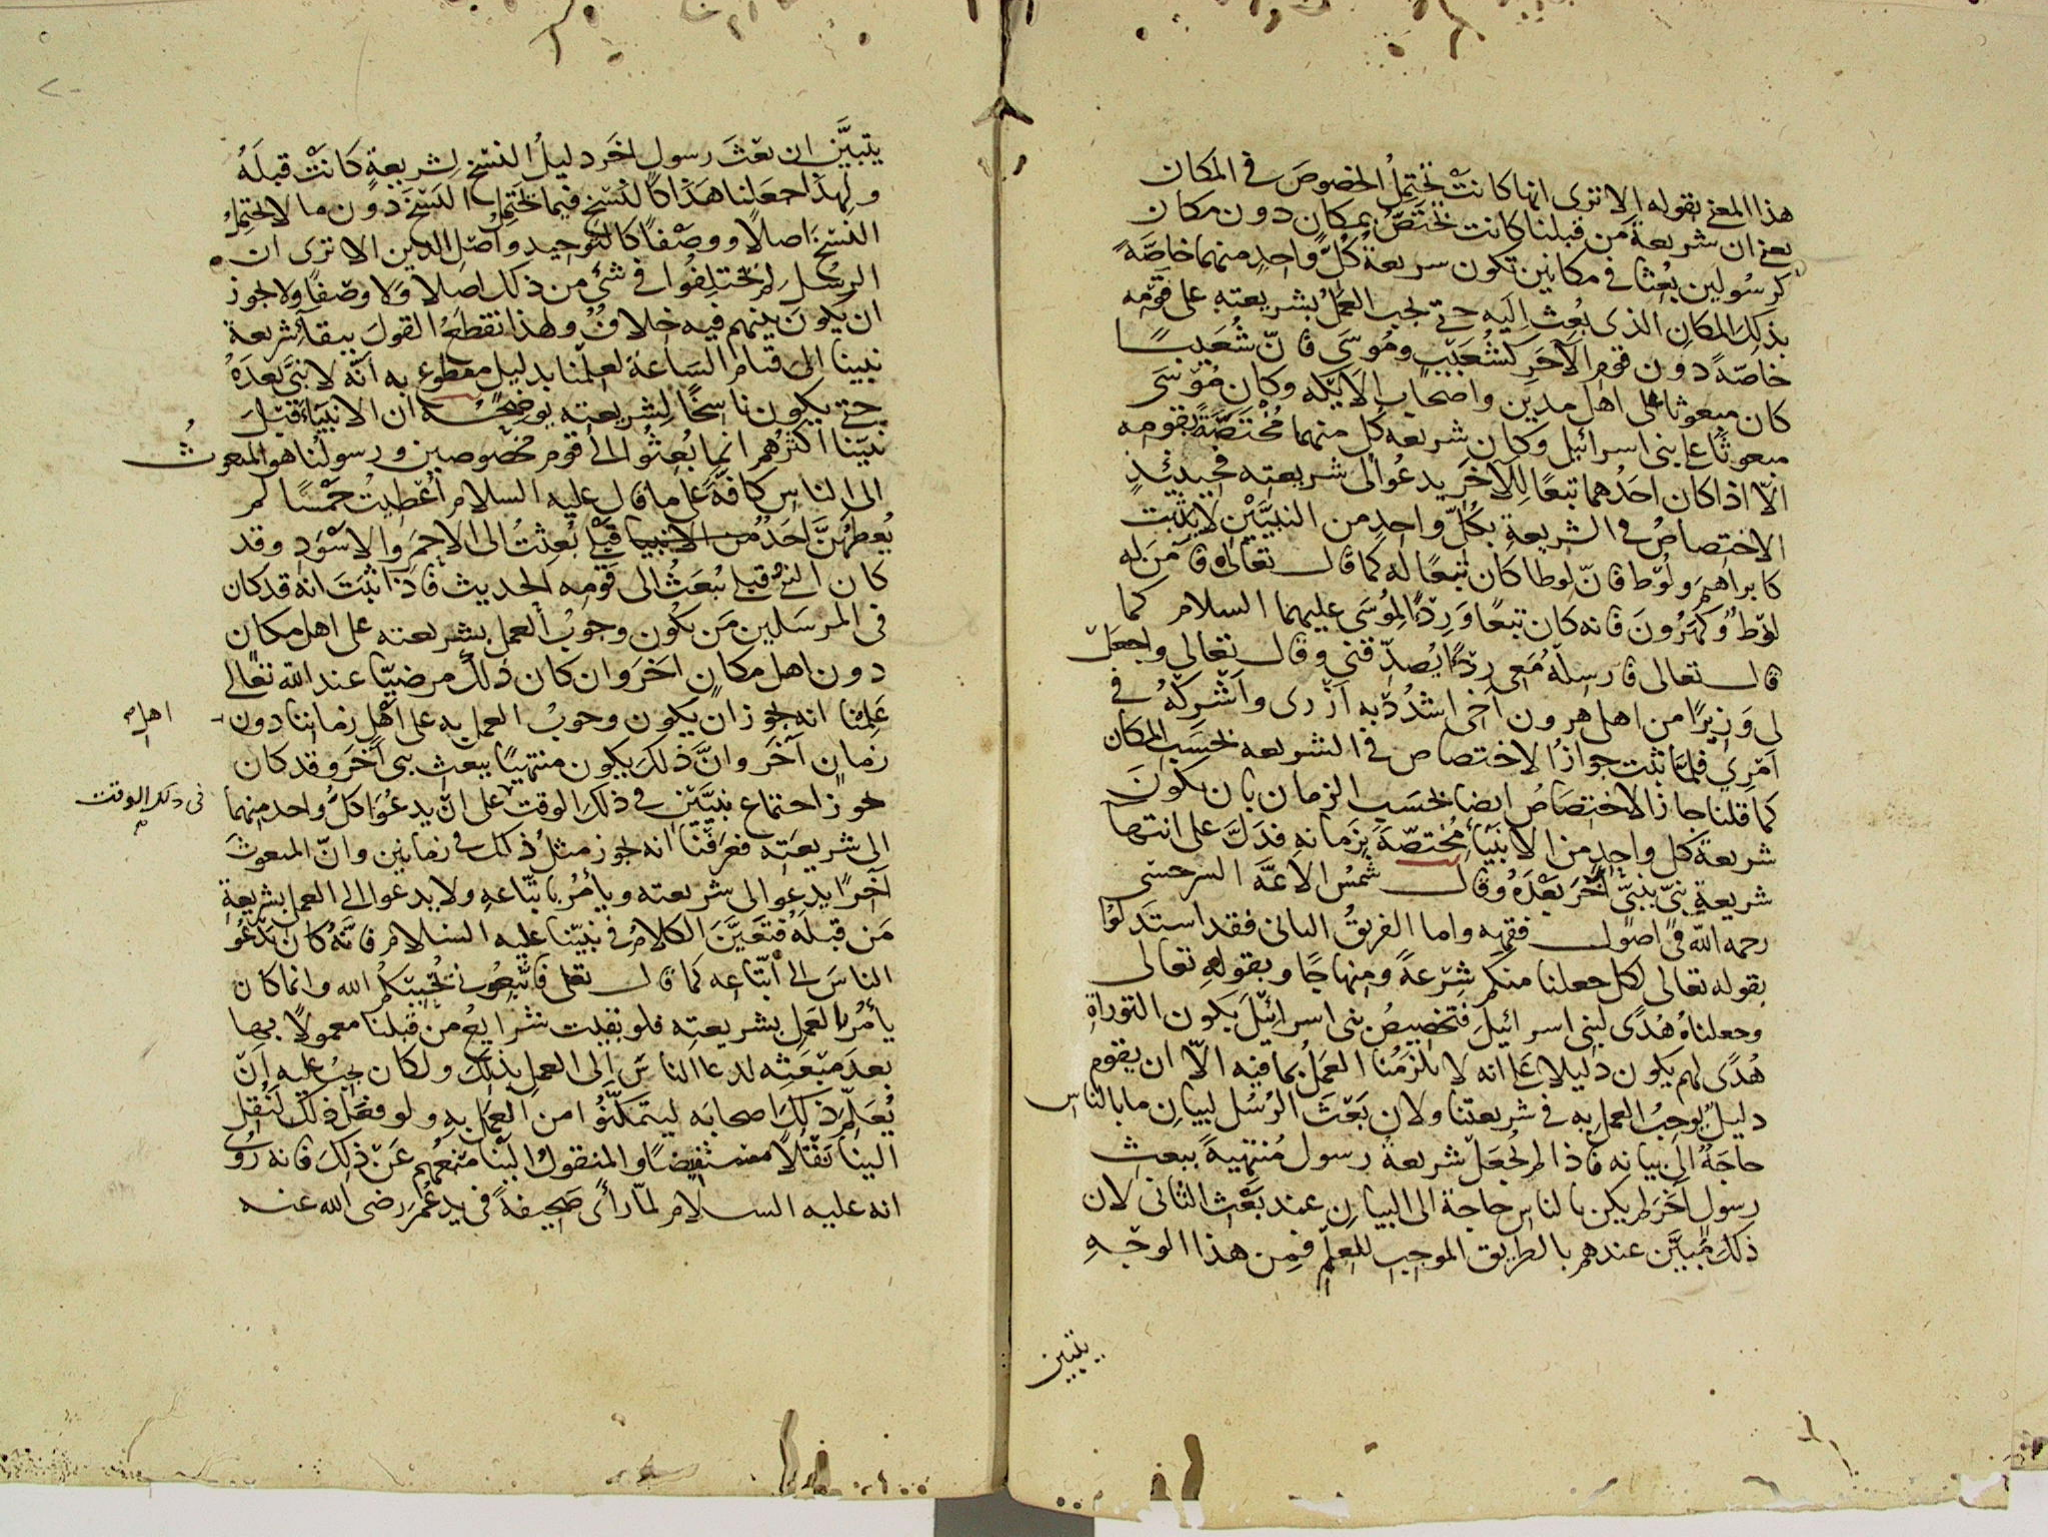 هذا المعنى بقوله الا ترى انها كانت تحتمل الخصوص فى المكان
يعنى ان شريعة من قبلنا كانت تختص بمكان دون مكان
كرسولين بعثا فى مكانين تكون شريعة كل واحد منهما خاصة
بذلك المكان الذى بعث اليه حتى يجب العمل بشريعته على قومه
خاصة دون قوم الآخر كشعيب وموسى فان شعيبا
كان مبعوثا على اهل مدين واصحاب الايكه وكان موسى
مبعوثا على بنى اسرائيل وكان شريعه كل منهما مختصة بقومه
الا اذا كان احدهما تبعا للآخر يدعوا الى شريعته فحينئذ
الاختصاص فى الشريعة بكل واحد من النبيين لا يثبت
كابراهيم ولوط فان لوطا كان تبعا له كما قال تعالى فآمن له
لوط وكهرون فانه كان تبعا وردءا لموسى عليهما السلام كما
قال تعالى فارسله معى ردءا يصدقنى وقال تعالى واجعل
لى وزيرا من اهلى هرون اخى اشدد به ازرى واشركه فى
امرى فلما ثبت جواز الاختصاص فى الشريعه بحسب المكان
كما قلنا جاز الاختصاص ايضا بحسب الزمان بان يكون
شريعة كل واحد من الانبياء مختصة بزمانه فدل على انتها
شريعة نبى بنبى آخر بعده وقال شمس الائمة السرخسى
رحمه الله فى اصول فقهه واما الفريق الثانى فقد استدلوا
بقوله تعالى لكل جعلنا منكم شرعة ومنهاجا وبقوله تعالى
وجعلناه هدى لبنى اسرائيل فتخصيص بنى اسرائيل بكون التوراة
هدى لهم يكون دليلا على انه لا يلزمنا العمل بما فيه الا ان يقوم
دليل يوجب العمل به فى شريعتنا ولان بعث الرسل لبيان ما بالناس
حاجة الى بيانه فاذا لم نجعل شريعة رسول منتهية ببعث
رسول آخر لم يكن بالناس حاجة الى البيان عند بعث الثانى لان
ذلك مبين عندهم بالطريق الموجب للعلم فمن هذا الوجه
يتبين
يتبين ان بعث رسول اخر دليل النسخ لشريعة كانت قبله
ولهذا جعلنا هذا كالنسخ فيما يحتمل النسخ دون ما لا يحتمل
النسخ اصلا ووصفا كالتوحيد واصل الدين الا ترى ان
الرسل لم يختلفوا فى شئ من ذلك اصلا ولا وصفا ولا يجوز
ان يكون بينهم فيه خلاف ولهذا نقطع القول ببقاء شريعة
نبينا الى قيام الساعة لعلمنا بدليل مقطوع به انه لا نبى بعده
حتى يكون ناسخا لشريعته يوضحه ان الانبياء قبل
نبينا اكثرهم انما بعثوا الى قوم مخصوصين ورسولنا هو المبعوث
الى الناس كافة على ما قال عليه السلام اعطيت خمسا لم
يعطهن احد من الانبيا قبلى بعثت الى الاحمر والاسود وقد
كان النبى قبلى يبعث الى قومه الحديث فاذا ثبت انه قد كان
فى المرسلين من يكون وجوب العمل بشريعته على اهل مكان
دون اهل مكان اخر وان كان ذلك مرضيا عند الله تعالى
علمنا انه يجوز ان يكون وجوب العمل به على اهل زماننا دون
اهل
زمان آخر وان ذلك يكون منتهيا ببعث نبى آخر وقد كان
يجوز اجتماع نبيين فى ذلك الوقت على ان يدعوا كل واحد منهما
فى ذلك الوقت
الى شريعته فعرفنا انه يجوز مثل ذلك فى زمانين وان المبعوث
آخرا يدعو الى شريعته ويأمر باتباعه ولا يدعوا الى العمل بشريعة
من قبله فتعين الكلام فى نبينا عليه السلام فانه كان يدعو
الناس الى اتباعه كما قال تعالى فاتبعونى يحببكم الله وانما كان
يأمر بالعمل بشريعته فلو بقيت شرايع من قبلنا معمولا بها
بعد مبعثه لدعا الناس الى العمل بذلك ولكان يجب عليه ان
يعلم ذلك اصحابه ليتمكنوا من العمل به ولو فعل ذلك لنقل
الينا نقلا مستفيضا والمنقول الينا منعهم عن ذلك فانه روى
انه عليه السلام لما رأى صحيفة فى يد عمر رضى الله عنه